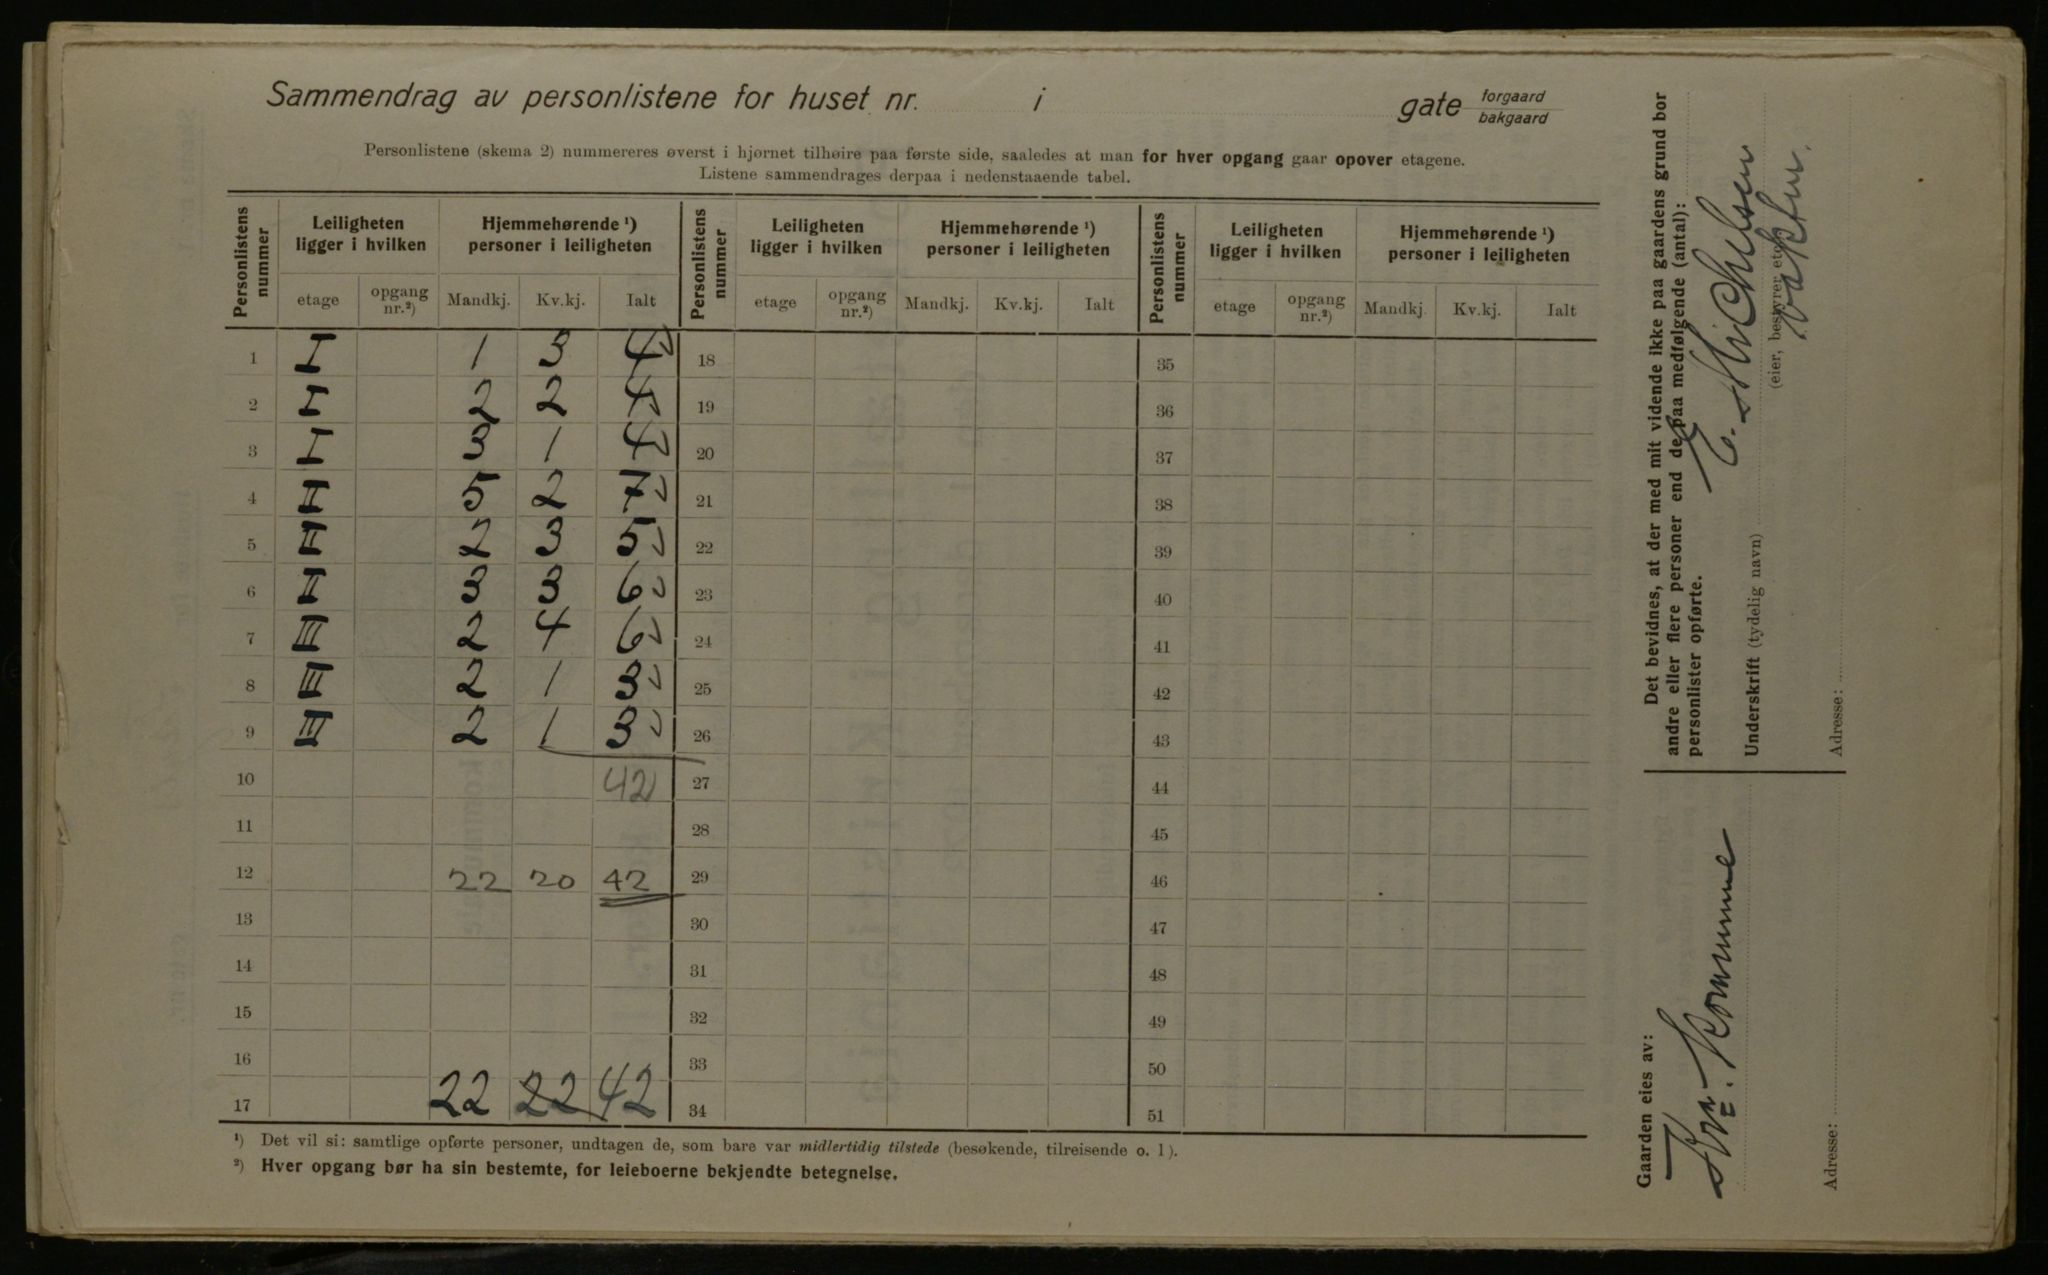 Sammendrag av personlistene for huset nr. i gate forgaard
bakgaard
Personlistene (skema 2) nummereres øverst i hjørnet tilhøire paa første side, saaledes at man for hver opgang gaar opover etagene.
Listene sammendrages derpaa i nedenstaaende tabel.
Personlistens nummer | Leiligheten ligger i hvilken | Hjemmehørende ¹) personer i leiligheten | Personlistens nummer | Leiligheten ligger i hvilken | Hjemmehørende ¹) personer i leiligheten | Personlistens nummer | Leiligheten ligger i hvilken | Hjemmehørende ¹) personer i leiligheten
etage | opgang nr.²) | Mandkj. | Kv.kj. | Ialt | etage | opgang nr.²) | Mandkj. | Kv.kj. | Ialt | etage | opgang nr.²) | Mandkj. | Kv.kj. | Ialt
1 I 1 3 4 18 35
2 I 2 2 4 19 36
3 I 3 1 4 20 37
4 II 5 2 7 21 38
5 II 2 3 5 22 39
6 II 3 3 6 23 40
7 III 2 4 6 24 41
8 III 2 1 3 25 42
9 III 2 1 3 26 43
10 42 27 44
11 28 45
12 22 20 42 29 46
13 30 47
14 31 48
15 32 49
16 33 50
17 22 22 42 34 51
¹) Det vil si: samtlige opførte personer, undtagen de, som bare var midlertidig tilstede (besøkende, tilreisende o. l).
²) Hver opgang bør ha sin bestemte, for leieboerne bekjendte betegnelse.
Det bevidnes, at der med mit vidende ikke paa gaardens grund bor
andre eller flere personer end de paa medfølgende (antal):
personlister opførte.
E. Michelsen
Underskrift (tydelig navn)
(eier, bestyrer etc.)
Vaktm.
Adresse:
Gaarden eies av:
Kra. Kommune
Adresse: